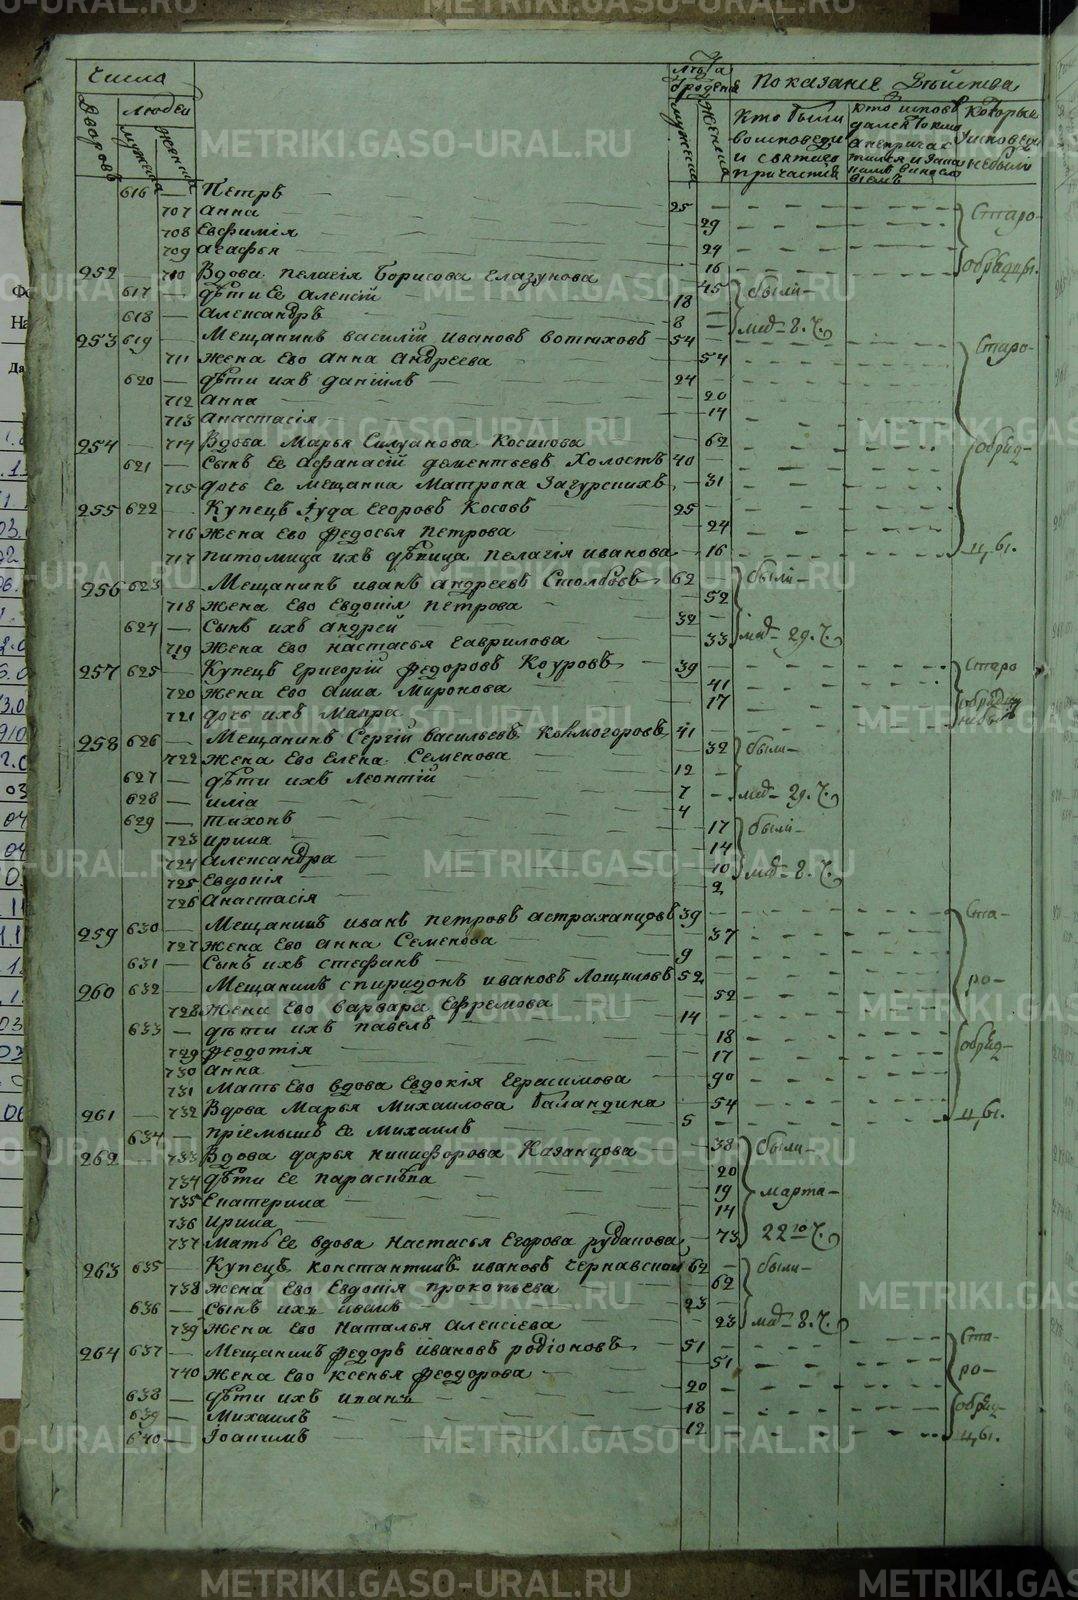 Числа
Дворовъ
Людей
мужеска
женска
лѣта
мужеска
женска
Показанiе Дѣйства
Кто были
во исповеди
и святаго
причастiя
Которые
исповеди
небыли
616 — Петръ 25
707 Анна 29
708 Евфимiя 24
709 Агафья 16
952 — 710 Вдова Пелагiя Борисова Глазунова 45
617 — дѣти Ее Алексiй 18
618 — Александръ 8
были
953 619 — Мещанинъ Василiй Ивановъ Вотяховъ 54
711 Жена Ево Анна Андреева 54
620 — дѣти ихъ Данiилъ 24
712 Анна 20
713 Анастасiя 14
954 — 714 Вдова Марья Силуанова Косинова 62
621 — Сынъ Ее Афанасiй Дементьевъ Холостъ 40
715 дочь Ее Мещанка Матрона Загурскихъ 31
955 622 — Купецъ Iуда Егоровъ Косовъ 25
716 Жена Ево Федосья Петрова 24
717 питомица ихъ дѣвица Пелагiя Иванова 16
Старо-
обряд-
цы.
956 623 — Мещанинъ Иванъ Андреевъ Столбовъ 62
718 Жена Ево Евдокiя Петрова 52
624 — Сынъ ихъ Андрей 32
719 Жена Ево Настасья Гаврилова 33
были
957 625 — Купецъ Григорiй Федоровъ Коуровъ 39
720 Жена Ево Анна Миронова 41
721 дочь ихъ Мавра 17
Старо
958 626 — Мещанинъ Сергiй Васильевъ Колмогоровъ 41
722 Жена Ево Елена Семенова 32
627 — дѣти ихъ Леонтiй 12
628 — Илiа 7
629 — Тихонъ 4
723 Ирина 17
724 Александра 14
725 Евдокiя 10
726 Анастасiя 2
были
были
959 630 — Мещанинъ Иванъ Петровъ Астраханцовъ 39
727 Жена Ево Анна Семенова 37
631 — Сынъ ихъ Стефанъ 9
960 632 — Мещанинъ Спиридонъ Ивановъ Лощиловъ 52
728 Жена Ево Варвара Ефремова 52
633 — дѣти ихъ Павелъ 14
729 Феодотiя 18
730 Анна 17
731 Мать Ево вдова Евдокiя Герасимова 90
961 — 732 Вдова Марья Михаилова Баландина 54
634 — прiемышъ Ее Михаилъ 5
Ста-
ро-
обряд-
цы.
962 — 733 Вдова Дарья Никифорова Казанцова 38
734 дѣти Ее Параскѣва 20
735 Екатерина 19
736 Ирина 14
737 Мать Ее вдова Настасья Егорова Рубанова 73
были
марта
22го ч.
963 635 — Купецъ Константинъ Ивановъ Чернавской 62
738 Жена Ево Евдокiя Прокопьева 62
636 — Сынъ ихъ Иванъ 23
739 Жена Ево Наталья Алексiева 23
были
964 637 — Мещанинъ Федоръ Ивановъ Родiоновъ 51
740 Жена Ево Ксенья Феодорова 51
638 — дѣти ихъ Иванъ 20
639 — Михаилъ 18
640 — Iоакимъ 12
Ста-
ро-
обряд-
цы.
METRIKI.GASO-URAL.RU